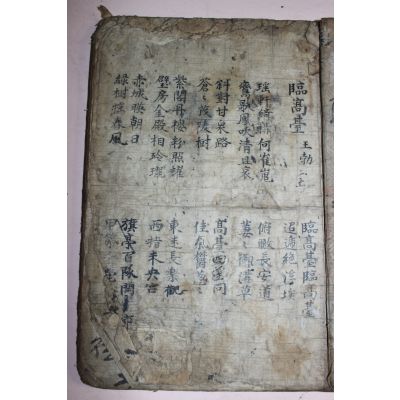 臨高臺 王勃
臨高臺臨高臺
迢遞絕浮埃
瑤軒綺構何崔嵬
鸞歌鳳吹清且哀
俯瞰長安道
萋〻御溝草
斜對甘泉路
蒼〻茂陵樹
高臺四望同
佳氣鬱蔥〻
紫閣丹樓紛照耀
璧房金殿相玲瓏
東迷長樂觀
西指未央宮
赤城映朝日
綠樹搖春風
旗亭百隊開新市
甲第